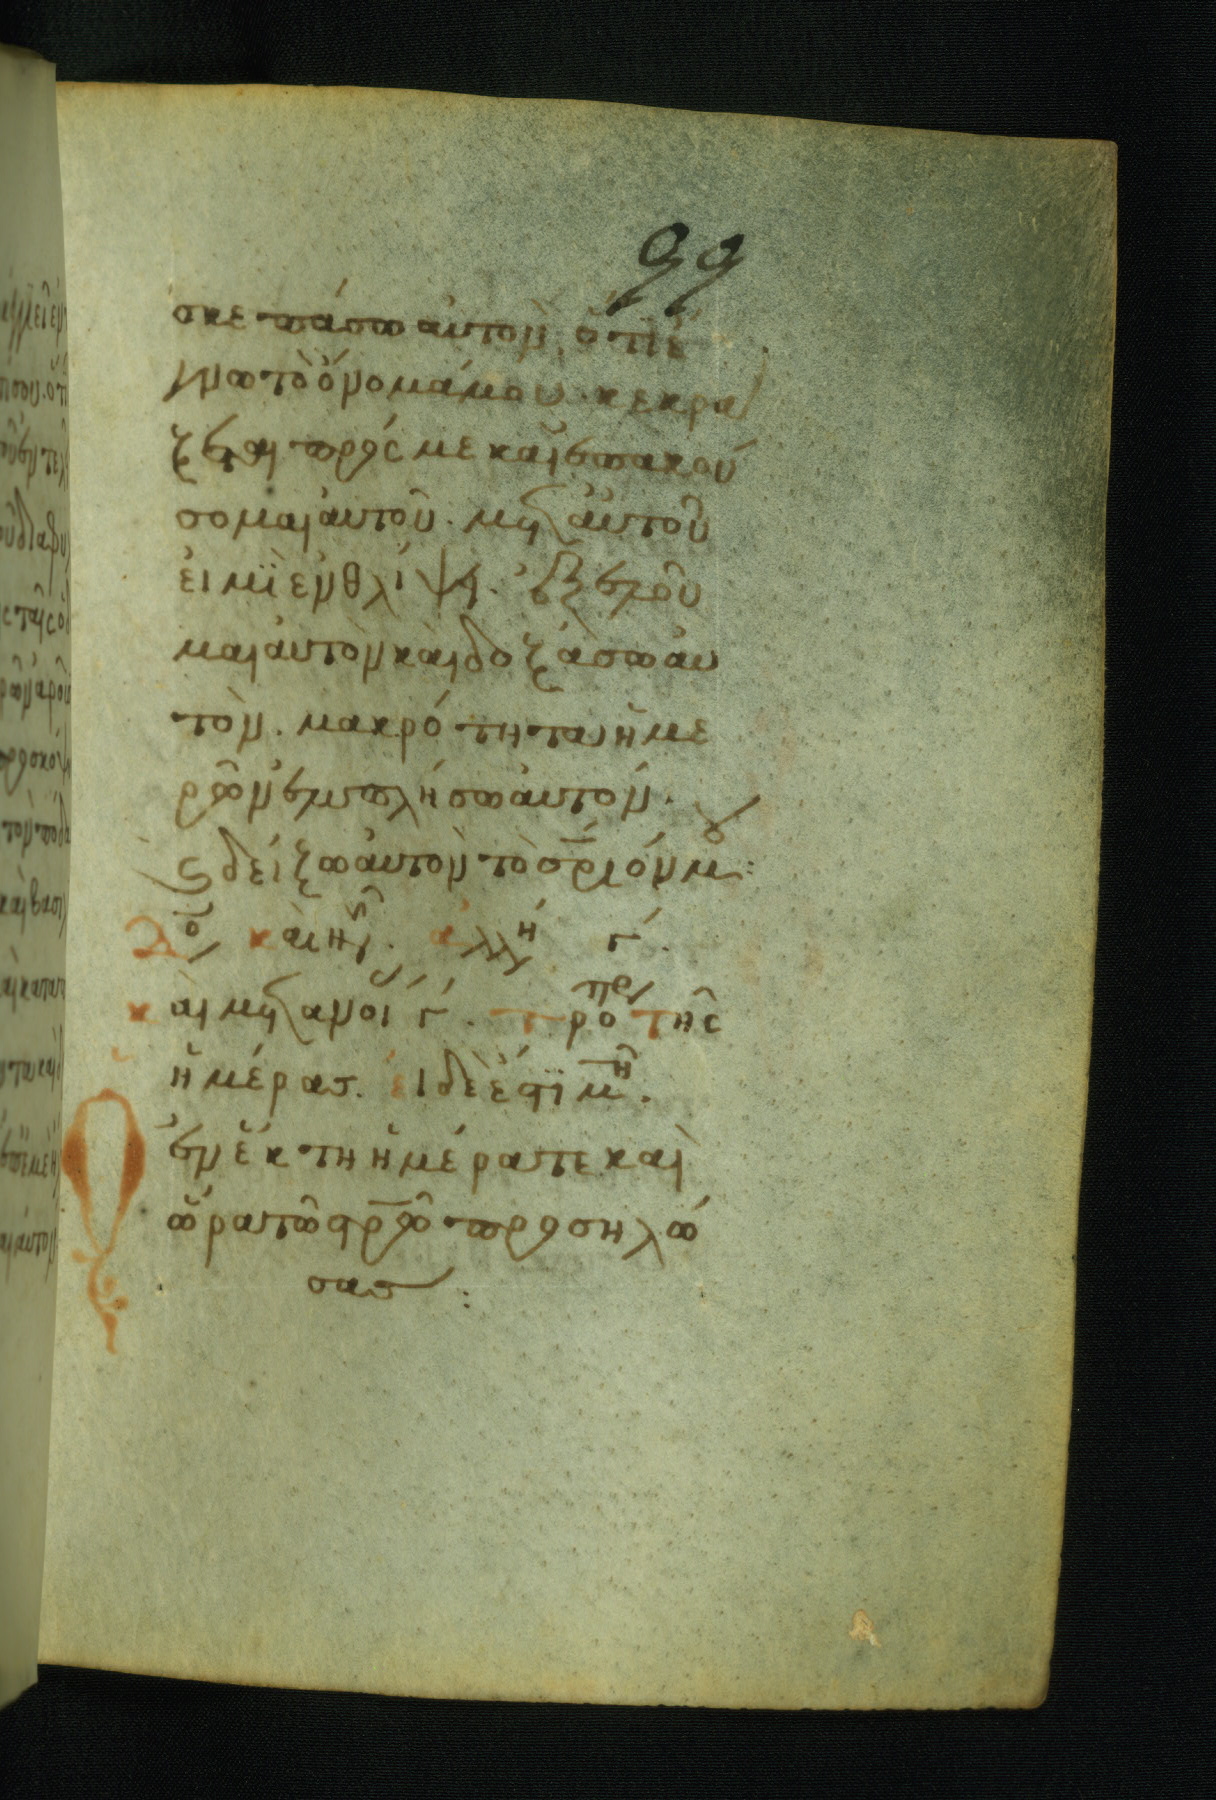 99
σκεπάσω αὐτὸν, ὅτι ἔ
γνω τὸ ὄνομά μου. κεκρά
ξεται πρός με καὶ ἐπακού
σομαι αὐτοῦ. μετ' αὐτοῦ
εἰμὶ ἐν θλίψει. ἐξελοῦ
μαι αὐτὸν καὶ δοξάσω αὐ
τόν. μακρότητα ἡμε
ρῶν ἐμπλήσω αὐτόν.
καὶ δείξω αὐτῷ τὸ σ̅ριόν μου:
Δόξ καὶ νῦν. ἀλλη γ΄.
καὶ μετανοί γ΄. τρο τῆς
ἡμέρας. εἰ δέ ἐστι μ̅η.
Ὁ ἐν ἕκτη ἡμέρα τε καὶ
ὥρα τῶ στ̅ρῶ προσηλώ
σας: